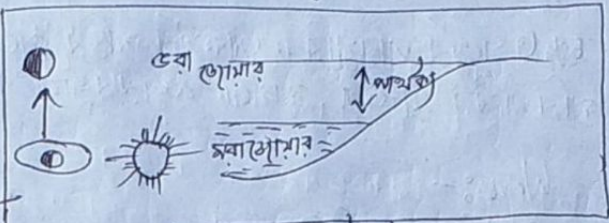 ভরা জোয়ার
পার্থক্য
মরা জোয়ার